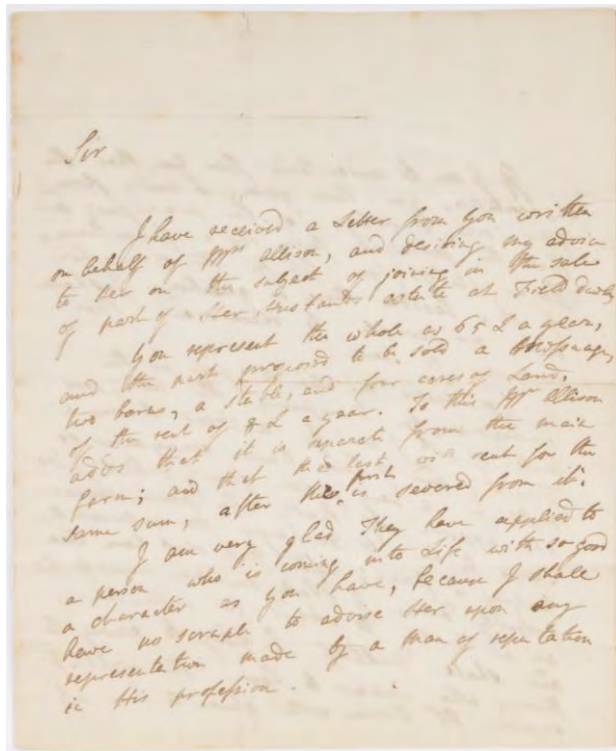 Sir
I have received a Letter from you written
on behalf of Mrs Allison, and desiring my advice
to Her on the subject of joining in the sale
of part of Her Husbands estate at Field
You represent the whole as 65 L a year,
and the part proposed to be sold a Messuage,
two barns, a stable, and four acres of Land,
of the rent of 8 L a year. To this Mrs Allison
adds that it is separate from the main
farm; and that the last will rent for the
same sum, after the first is severed from it.
I am very glad They have applied to
a person who is coming into Life with so good
a character as you have, because I shall
have no scruple to advise Her upon any
representation made by a Man of reputation
in His profession.